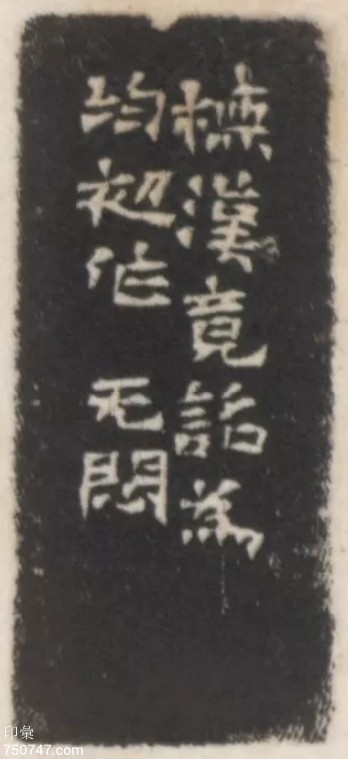 橅漢竟詺為
均初作 无悶
印彙
750747.com